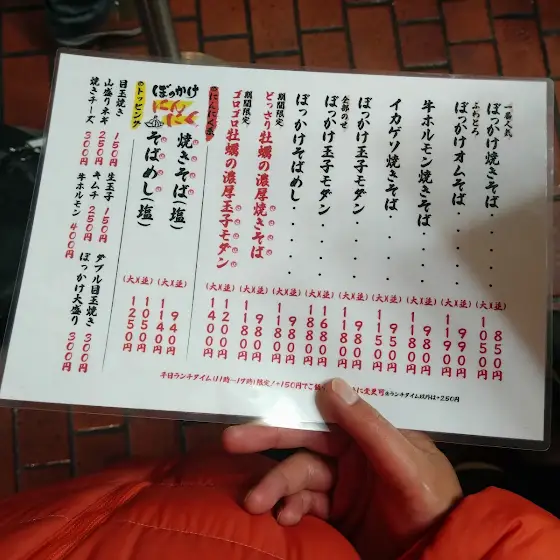 一番人気
ぼっかけ焼きそば
ふわとろ
ぼっかけオムそば
牛ホルモン焼きそば
イカゲソ焼きそば
ぼっかけ玉子モダン
全部のせ
ぼっかけ玉子モダン
ぼっかけそばめし
期間限定
どっさり牡蠣の濃厚焼きそば
期間限定
ゴロゴロ牡蠣の濃厚玉子モダン
にんにく
ぼっかけ
焼きそば(塩)
そばめし(塩)
(並)
(大)
850円
1050円
990円
980円
1180円
950円
1150円
980円
1180円
1680円
980円
1180円
1200円
1400円
940円
1140円
1050円
1250円
トッピング
目玉焼き 150円
山盛りネギ 250円
焼きチーズ 300円
生玉子 150円
キムチ 250円
牛ホルモン 400円
ダブル目玉焼き 300円
ぼっかけ大盛り 300円
平日ランチタイム(11時〜17時)限定!+150円でご飯
に変更可 ※ランチタイム以外は+250円